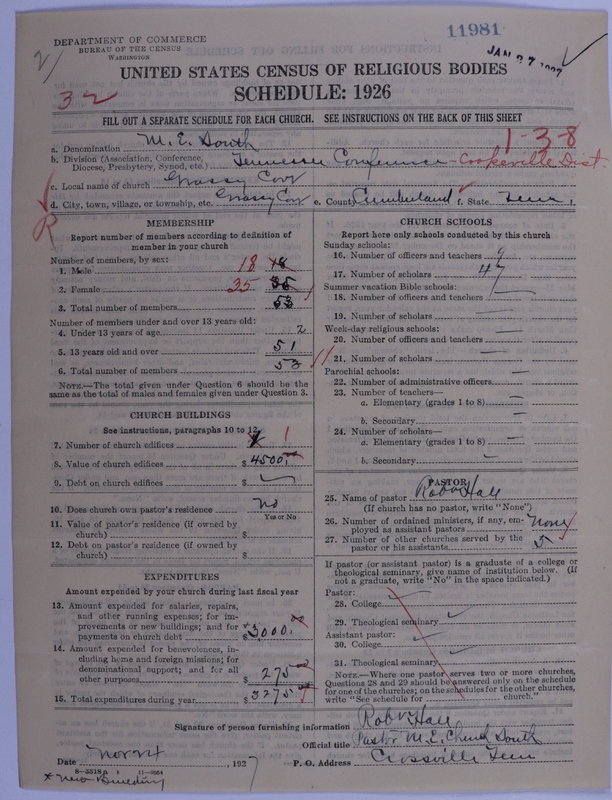 11981
JAN 27
DEPARTMENT OF COMMERCE
BUREAU OF THE CENSUS
WASHINGTON
2/
UNITED STATES CENSUS OF RELIGIOUS BODIES
32
SCHEDULE: 1926
FILL OUT A SEPARATE SCHEDULE FOR EACH CHURCH. SEE INSTRUCTIONS ON THE BACK OF THIS SHEET
a. Denomination M. E. South 1-3-8
b. Division (Association, Conference, Diocese, Presbytery, Synod, etc.) Tennessee Conference - Cookeville Dist
c. Local name of church Grassy Cove
d. City, town, village, or township, etc. Grassy Cove e. County Cumberland f. State Tenn.
R
MEMBERSHIP
Report number of members according to definition of
member in your church
Number of members, by sex:
1. Male 18 18
2. Female 35 35
3. Total number of members 53
Number of members under and over 13 years old:
4. Under 13 years of age 2
5. 13 years old and over 51
6. Total number of members 53
NOTE.—The total given under Question 6 should be the
same as the total of males and females given under Question 3.
CHURCH BUILDINGS
See instructions, paragraphs 10 to 12
7. Number of church edifices 1
8. Value of church edifices $4500.00
9. Debt on church edifices $
10. Does church own pastor's residence No
Yes or No
11. Value of pastor's residence (if owned by
church) $
12. Debt on pastor's residence (if owned by
church) $
EXPENDITURES
Amount expended by your church during last fiscal year
13. Amount expended for salaries, repairs,
and other running expenses; for im-
provements or new buildings; and for
payments on church debt *$3000.00
14. Amount expended for benevolences, in-
cluding home and foreign missions; for
denominational support; and for all
other purposes $275.00
15. Total expenditures during year $3275.00
CHURCH SCHOOLS
Report here only schools conducted by this church
Sunday schools:
16. Number of officers and teachers 9
17. Number of scholars 47
Summer vacation Bible schools:
18. Number of officers and teachers —
19. Number of scholars —
Week-day religious schools:
20. Number of officers and teachers —
21. Number of scholars —
Parochial schools:
22. Number of administrative officers —
23. Number of teachers—
a. Elementary (grades 1 to 8) —
b. Secondary —
24. Number of scholars—
a. Elementary (grades 1 to 8) —
b. Secondary —
PASTOR
25. Name of pastor Robt Hall
(If church has no pastor, write "None")
26. Number of ordained ministers, if any, em-
ployed as assistant pastors none
27. Number of other churches served by the
pastor or his assistants 5
If pastor (or assistant pastor) is a graduate of a college or
theological seminary, give name of institution below. (If
not a graduate, write "No" in the space indicated.)
Pastor:
28. College
29. Theological seminary
Assistant pastor:
30. College
31. Theological seminary
NOTE.—Where one pastor serves two or more churches,
Questions 28 and 29 should be answered only on the schedule
for one of the churches; on the schedules for the other churches,
write "See schedule for church."
Signature of person furnishing information Robt Hall
Official title Pastor M.E. Church South
Date Nov 24, 1927 P. O. Address Crossville Tenn
8—5518 a 1 11—9064
* New Building